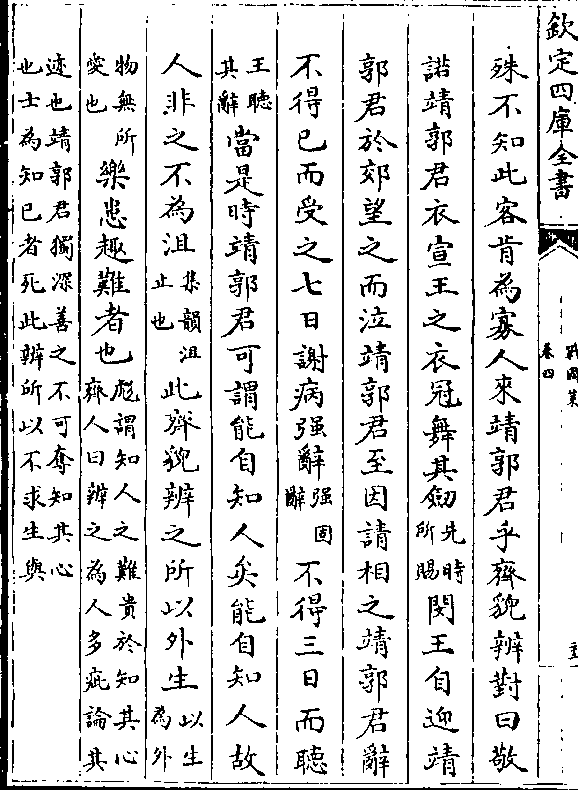 欽定四庫全書
戰國策
卷四
殊不知此客肯為寡人來靖郭君乎齊貌辨對曰敬
諾靖郭君衣宣王之衣冠舞其劒先時所賜閔王自迎靖
郭君於郊望之而泣靖郭君至因請相之靖郭君辭
不得已而受之七日謝病强辭强固辭不得三日而聽
王聽其辭當是時靖郭君可謂能自知人矣能自知人故
人非之不為沮集韻沮止也此齊貌辨之所以外生以生為外
物無所愛也樂患趣難者也彪謂知人之難貴於知其心齊人曰辨之為人多疵論其
迹也靖郭君獨深善之不可奪知其心也士為知已者死此辨所以不求生與